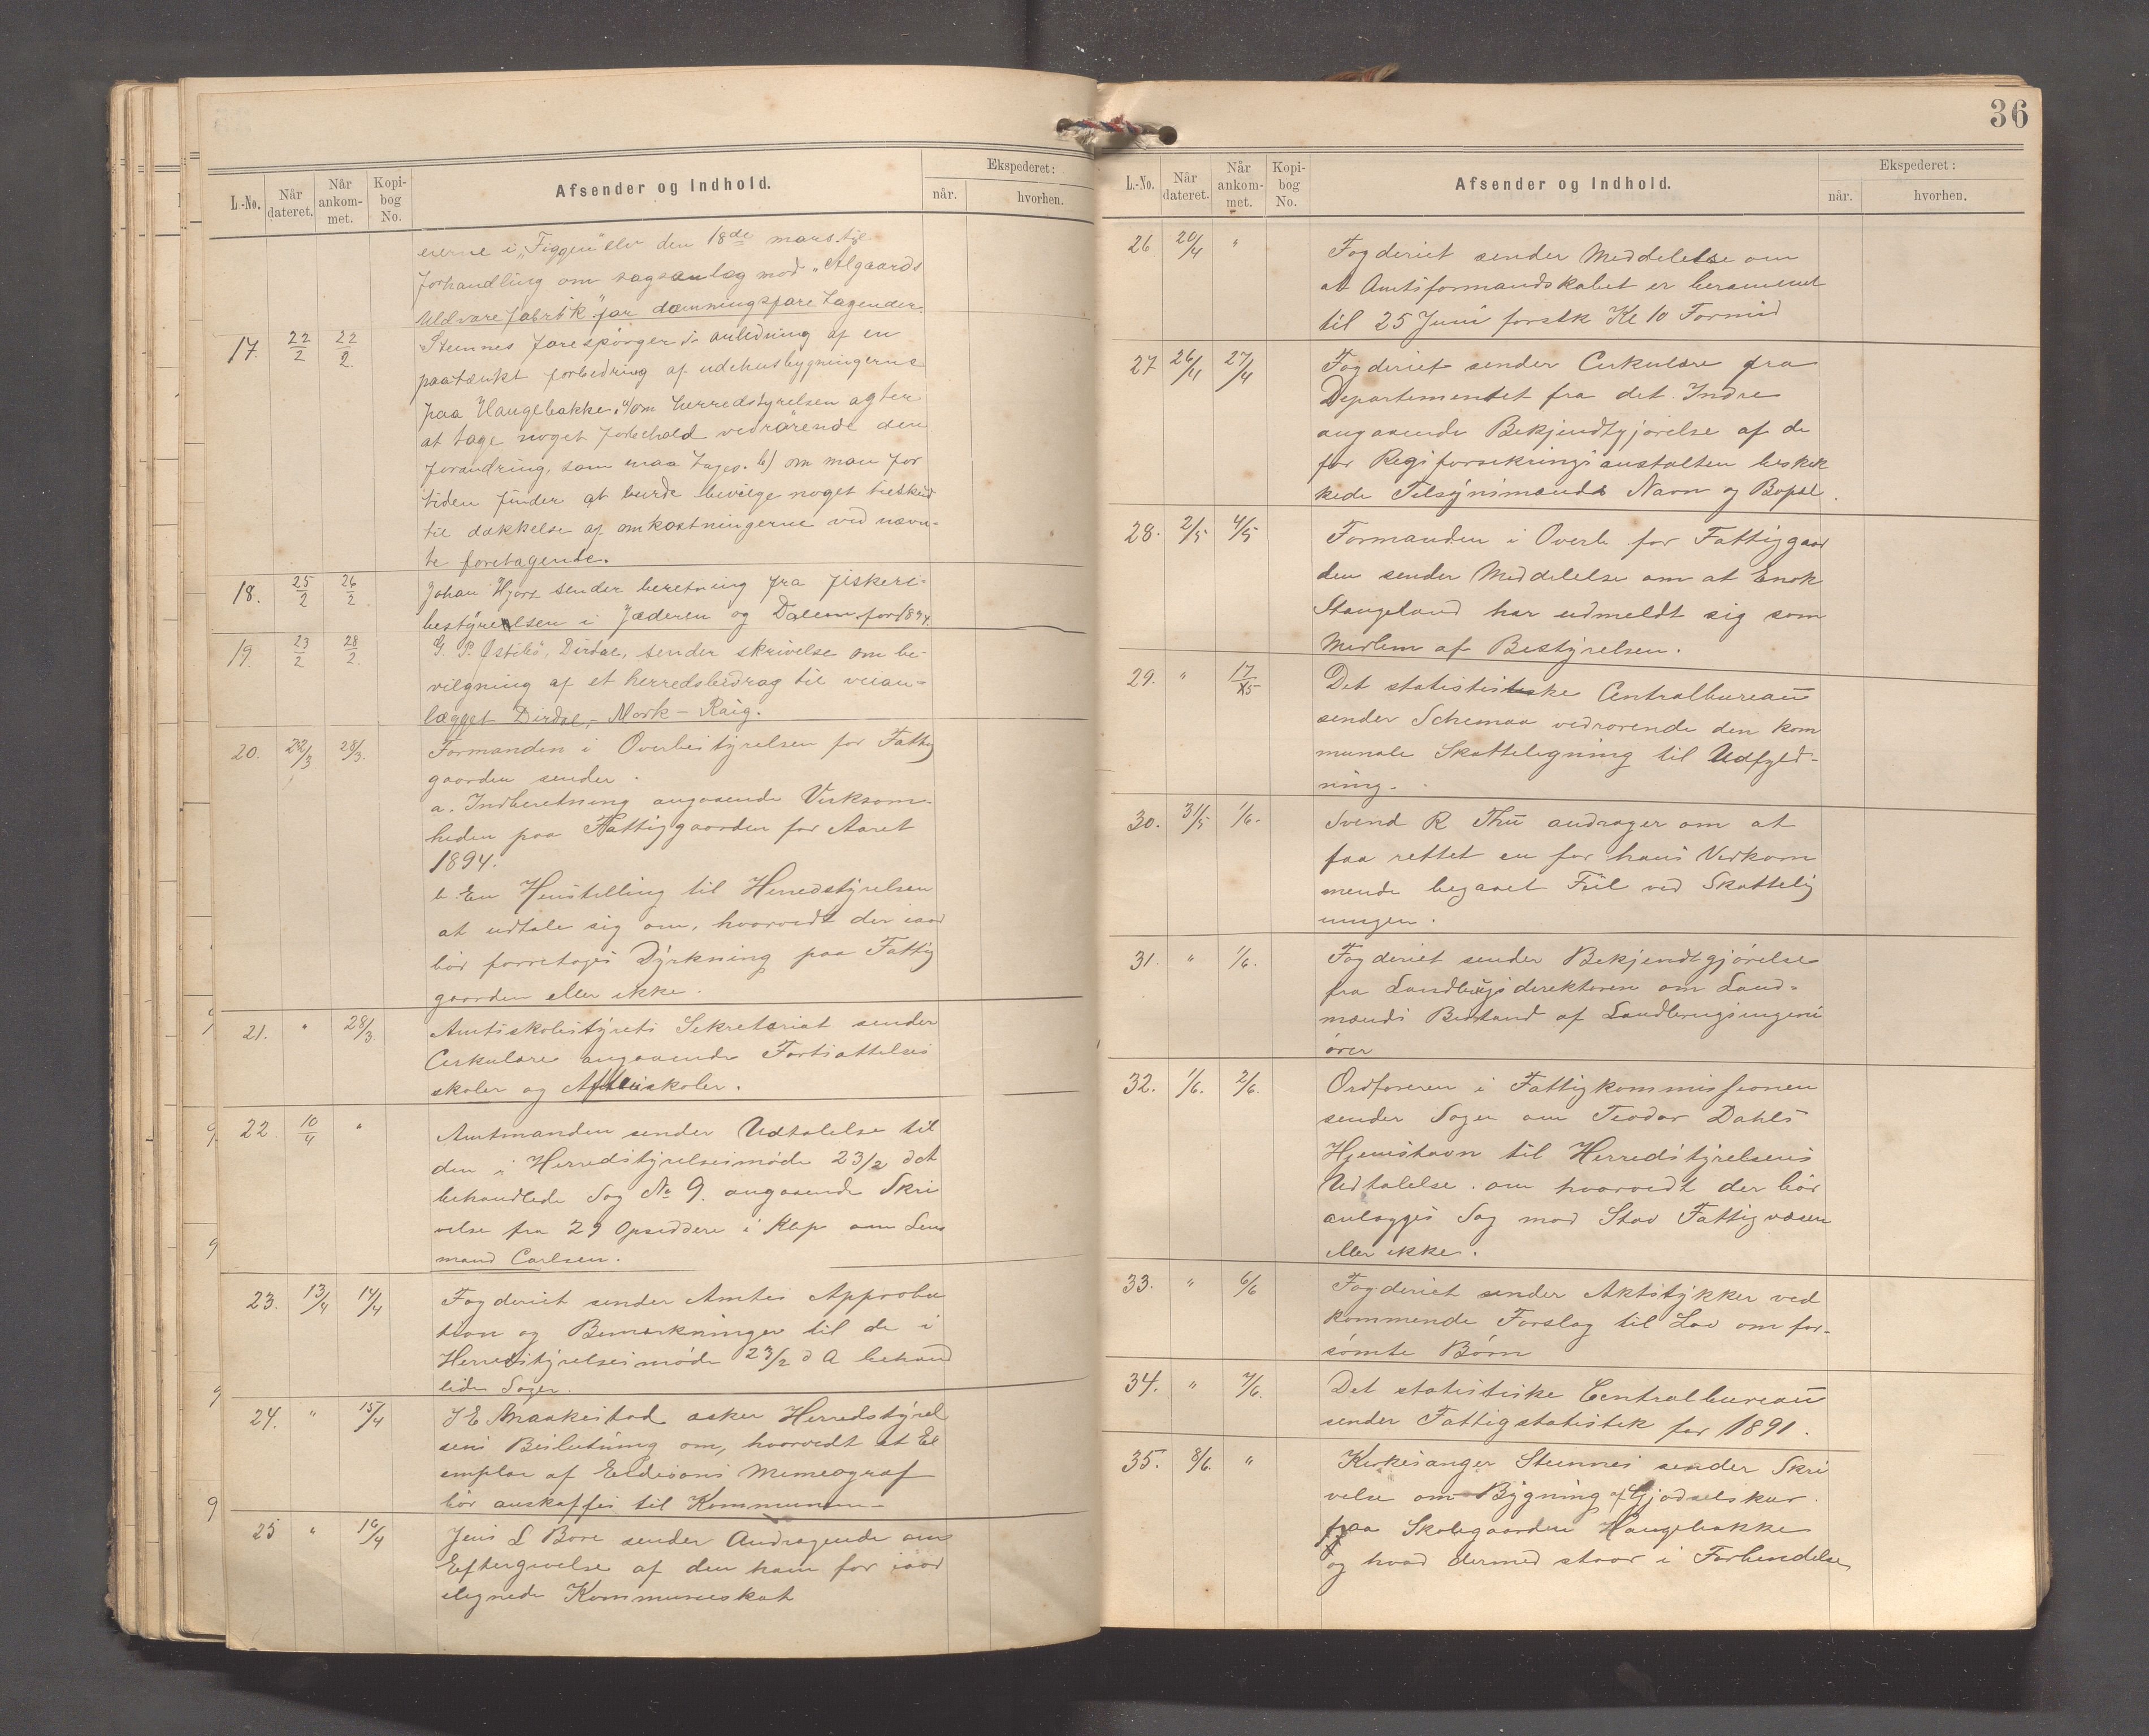 L.-No. Når dateret. Når ankom-met. Kopi-bog No. Afsender og Indhold. Ekspederet: når. hvorhen.
eierne i „Figgen“elv den 18de mars tje
forhandling om sagsanlag mod „Algaards
Uldvarefabrik“ for dæmningsfaretagender.
17. 22/2 22/2. Steinnes forespörger i anledning af en
paatænkt forbedring af udehusbygningerne
paa Haugebakke, a) om herredstyrelsen agter
at tage noget forbehold vedrörende den
forandring, som maa tages. b) om man for
tiden finder at burde bevilge noget tilskud
til dækkelse af omkostningerne ved nævn-
te foretagende.
18. 25/2 26/2 Johan Hjort sender beretning fra fiskeri-
bestyrelsen i Jæderen og Dalerne for 1894.
19. 23/2 28/2. G. P. Östebö, Dirdal, sender skrivelse om be-
vilgning af et herredsbidrag til veian-
lægget Dirdal, - Mork - Raig.
20. 22/3 28/3. Formanden i Overbestyrelsen for Fattig
gaarden sender.
a. Indberetning angaaende Virksom-
heden paa Fattiggaarden for Aaret
1894.
b. En Henstilling til Herredstyrelsen
at udtale sig om, hvorvidt der iaar
bör forretages Dyrkning paa Fattig
gaarden eller ikke.
21. " 28/3 Amtsskolestyrets Sekretariat sender
Cirkulære angaaende Fortsættelses
skoler og Aftenskoler.
22. 10/4 " Amtmanden sender Udtalelse til
den i Herredstyrelsesmöde 23/2 dst
behandlede Sag No 9. angaaende Skri
velse fra 29 Opsiddere i Klep om Lens
mand Carlsen.
23. 13/4 14/4 Fogderiet sender Amtes Approba
tion og Bemærkninger til de i
Herredstyrelsesmöde 23/2 d A behand
lede Sager.
24. " 15/4 J E Braakestad æsker Herredstyrel
sens Beslutning om, hvorvidt et Ex
emplar af Eedisons Mimeograf
bör anskaffes til Kommunen-
25 " 16/4 Jens L Bore sender Andragende om
Eftergivelse af den ham for iaar
ilegnede Kommuneskat
36
L.-No. Når dateret. Når ankom-met. Kopi-bog No. Afsender og Indhold. Ekspederet: når. hvorhen.
26 20/4 " Fogderiet sender Meddelelse om
at Amtsformandskabet er berammet
til 25 Juni förstk Kl 10 Formid
27 26/4 27/4 Fogderiet sender Cirkulære fra
Departementet fra det Indre
angaaende Bekjendtgjörelse af de
for Rigsforsikringsanstalten beskik
kede Tilsynsmænds Navn og Bopæl.
28. 2/5 4/5 Formanden i Overb. for Fattiggaar
den sender Meddelelse om at Enok
Stangeland har udmeldt sig som
Medlem af Bestyrelsen.
29. " 17/5 Det statistiske Centralbureau
sender Schemaa vedrørende den kom
munale Skattelegning til Udfyld-
ning.
30. 31/5 1/6. Svend R Thu andrager om at
faa rettet en for hans Vedkom
mende begaaet Feil ved Skattelig
ningen.
31. " 1/6. Fogderiet sender Bekjendtgjörelse
fra Landbrugsdirektøren om Land-
mænds Bistand af Landbrugsingeni
örer
32. 1/6. 2/6. Ordföreren i Fattigkommissionen
sender Sagen om Teodor Dahls
Hjemstavn til Herredstyrelsens
Udtalelse. om hvorvidt der bör
anlægges Sag mod Stav Fattigvæsen
eller ikke.
33. " 6/6 Fogderiet sender Aktstykker ved
kommende Forslag til Lov om for-
sömte Börn
34. " 7/6. Det statistiske Centralbureau
sender Fattigstatistik for 1891.
35. 8/6. " Kirkesanger Steinnes sender Skri
velse om Bygning af Gjödselskur
paa Skolegaarden Haugebakke
og hvad dermed staar i Forbindelse